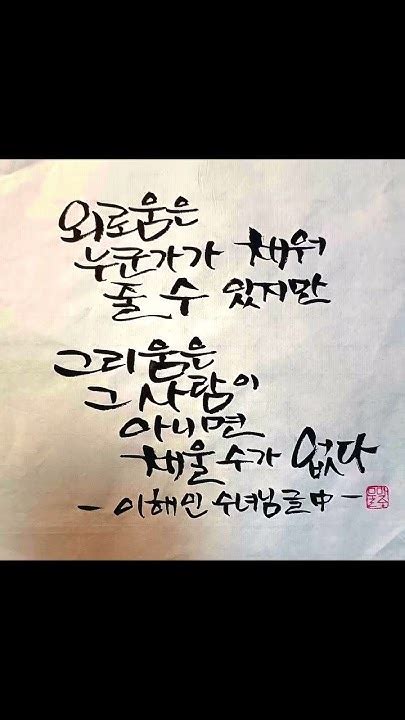 외로움은
누군가가 채워
줄 수 있지만
그리움은
그 사람이
아니면
채울 수가 없다
- 이해인 수녀님 글 中 -